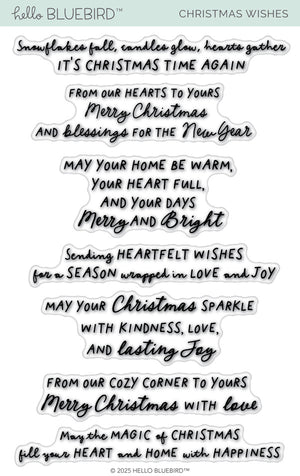 hello BLUEBIRD™
CHRISTMAS WISHES
Snowflakes fall, candles glow, hearts gather
IT'S CHRISTMAS TIME AGAIN
FROM OUR HEARTS TO YOURS
Merry Christmas
AND blessings FOR THE New Year
MAY YOUR HOME BE WARM,
YOUR HEART FULL,
AND YOUR DAYS
Merry AND Bright
Sending HEARTFELT WISHES
for a SEASON wrapped in LOVE and JOY
MAY YOUR Christmas SPARKLE
WITH KINDNESS, LOVE,
AND lasting Joy
FROM OUR COZY CORNER TO YOURS
Merry Christmas WITH love
May the MAGIC of CHRISTMAS
fill your HEART and HOME with HAPPINESS
© 2025 HELLO BLUEBIRD